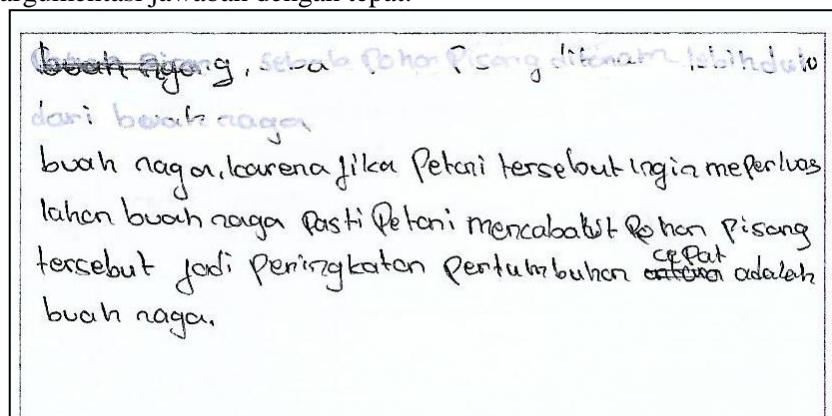 argumentasi jawaban dengan tepat.
buah naga, sebab Pohon Pisang ditanam lebih dulo
dari buah naga
buah naga, karena jika Petani tersebut ingin meperluas
lahan buah naga Pasti Petani mencababut Pohon Pisang
tersebut jadi Peningkatan Pertumbuhan cePat adalah
buah naga.